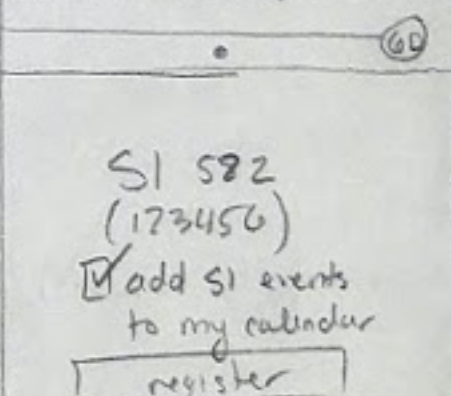 6D
SI 582
(123456)
add SI events
to my calendar
register